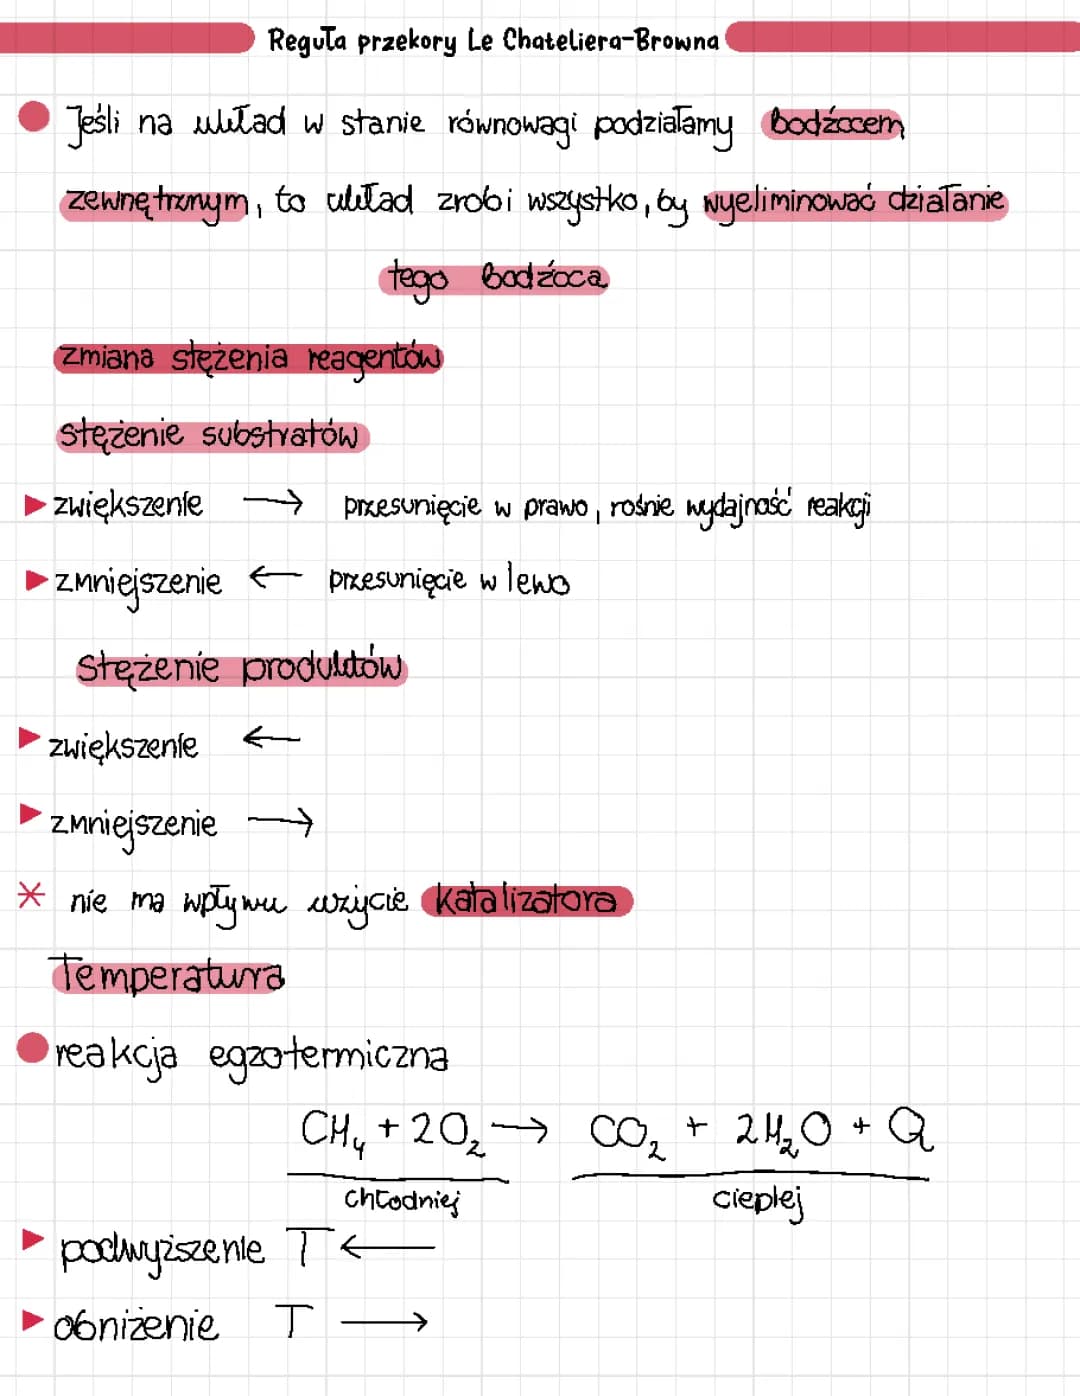 Reguła przekory Le Chateliera-Browna
Jeśli na układ w stanie równowagi podziałamy bodźcem
zewnętrznym, to układ zrobi wszystko, by wyeliminować działanie
tego bodźca
zmiana stężenia reagentów
stężenie substratów
▶ zwiększenie → przesunięcie w prawo, rośnie wydajność reakcji
▶ zmniejszenie ← przesunięcie w lewo
stężenie produktów
▶ zwiększenie ←
▶ zmniejszenie →
* nie ma wpływu użycie katalizatora
Temperatura
reakcja egzotermiczna
CH₄ + 2O₂ → CO₂ + 2H₂O + Q
chłodniej cieplej
▶ podwyższenie T ←
▶ obniżenie T →